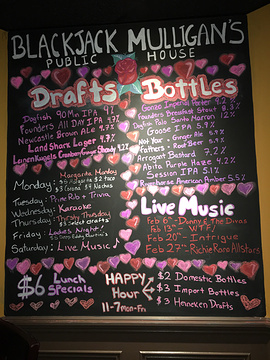 BLACKJACK MULLIGAN'S
PUBLIC HOUSE
Drafts
Dogfish 90 Min IPA
Founders All Day IPA 4.7
Newcastle Brown Ale 4.7%
Land Shark Lager 4.7%
Leinenkugels Cranberry Ginger Shandy 4.2%
Bottles
Gonzo Imperial Porter 9.2%
Founders Breakfast Stout 8.3%
Dogfish Palo Santo Marron 12%
Goose IPA 5.9%
Not Your Fathers - Ginger Ale
- Root Beer
Arrogant Bastard 7.2%
Abita Purple Haze 4.2%
Session IPA 5.1%
American Amber 5.5%
Monday: Margarita Monday
Tuesday: Pine Rob + Trivia
Wednesday: Karaoke
Thursday: Thirsty Thursday
Friday: Ladies Night!
Saturday: Live Music
Live Music
Feb 6th - Danny E The Divas
Feb 13th - WTF!
Feb 20th - Intrigue
Feb 27th - Richie Rann Allstars
$6 Lunch Specials
HAPPY Hour
11-7 Mon-Fri
$2 Domestic Bottles
$3 Import Bottles
$3 Heineken Drafts